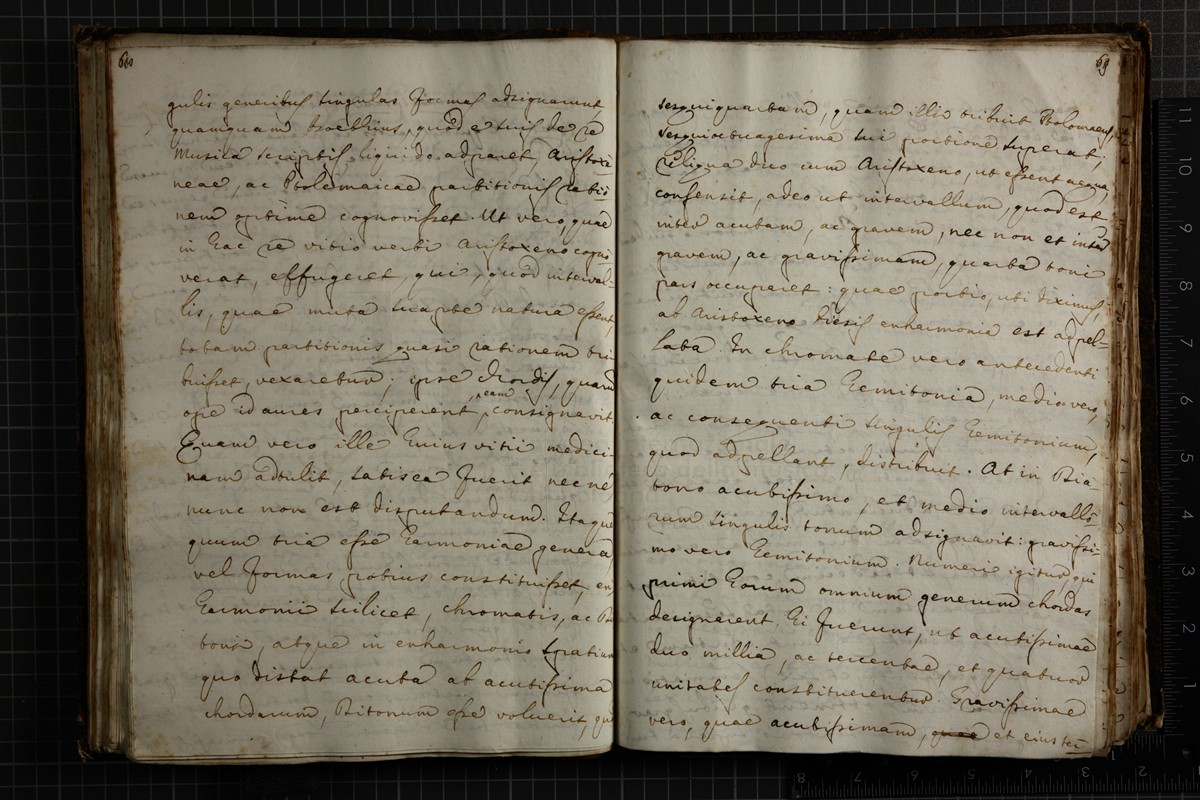 68
gulis generibus singulas formas adsignarunt
quamquam Boethius, quod e suis de re
Musica scriptis liquido adparet, Aristoxe-
neae, ac Ptolemaicae partitionis ratio-
nem optime cognovisset. Ut vero, quae
in hac re vitio verti Aristoxeno cogno
verat, effugeret, qui, quod interval-
lis, quae muta suapte natura essent,
totam partitionis quasi rationem tri
buisset, vexarebur; ipse chordis, quarum
ope id aures perciperent, eam consignavit.
Quam vero ille huius vitii medici
nam adtulit, satis ea fuerit nec ne
nunc non est disputandum. Itaque
quum tria esse harmoniae genera,
vel formas potius constituisset, en
harmonii scilicet, chromatis, ac Di
toni, atque in enharmonio spatium
quo distat acuta ab acutissima
chordarum, Ditonum esse voluerit, qu
69
sesquiquartam, quam illis tribuit Ptolomaeus,
sesquioctuagesima sui portione superat;
reliqua duo cum Aristoxeno, ut essent aequa,
consensit, adeo ut intervallum, quod est
inter acutam, ac gravem, nec non et inter
gravem, ac gravissimam, quarta toni
pars occuparet: quae portio, uti diximus,
ab Aristoxeno Diesis enharmonia est adpel-
lata. In chromate vero antecedenti
quidem tria hemitonia, medio vero,
ac consequenti singulis hemitonium,
quod adpellant, distribuit. At in Dia-
tono acutissimo, et medio intervallo-
rum singulis tonum adsignavit: gravissi-
mo vero hemitonium. Numeri igitur qui
primi horum omnium generum chordas
designarent, hi fuerunt, ut acutissimae
duo millia, ac tercentae, et quatuor
unitates constituerentur. Gravissimae
vero, quae acutissimam, et eius ter